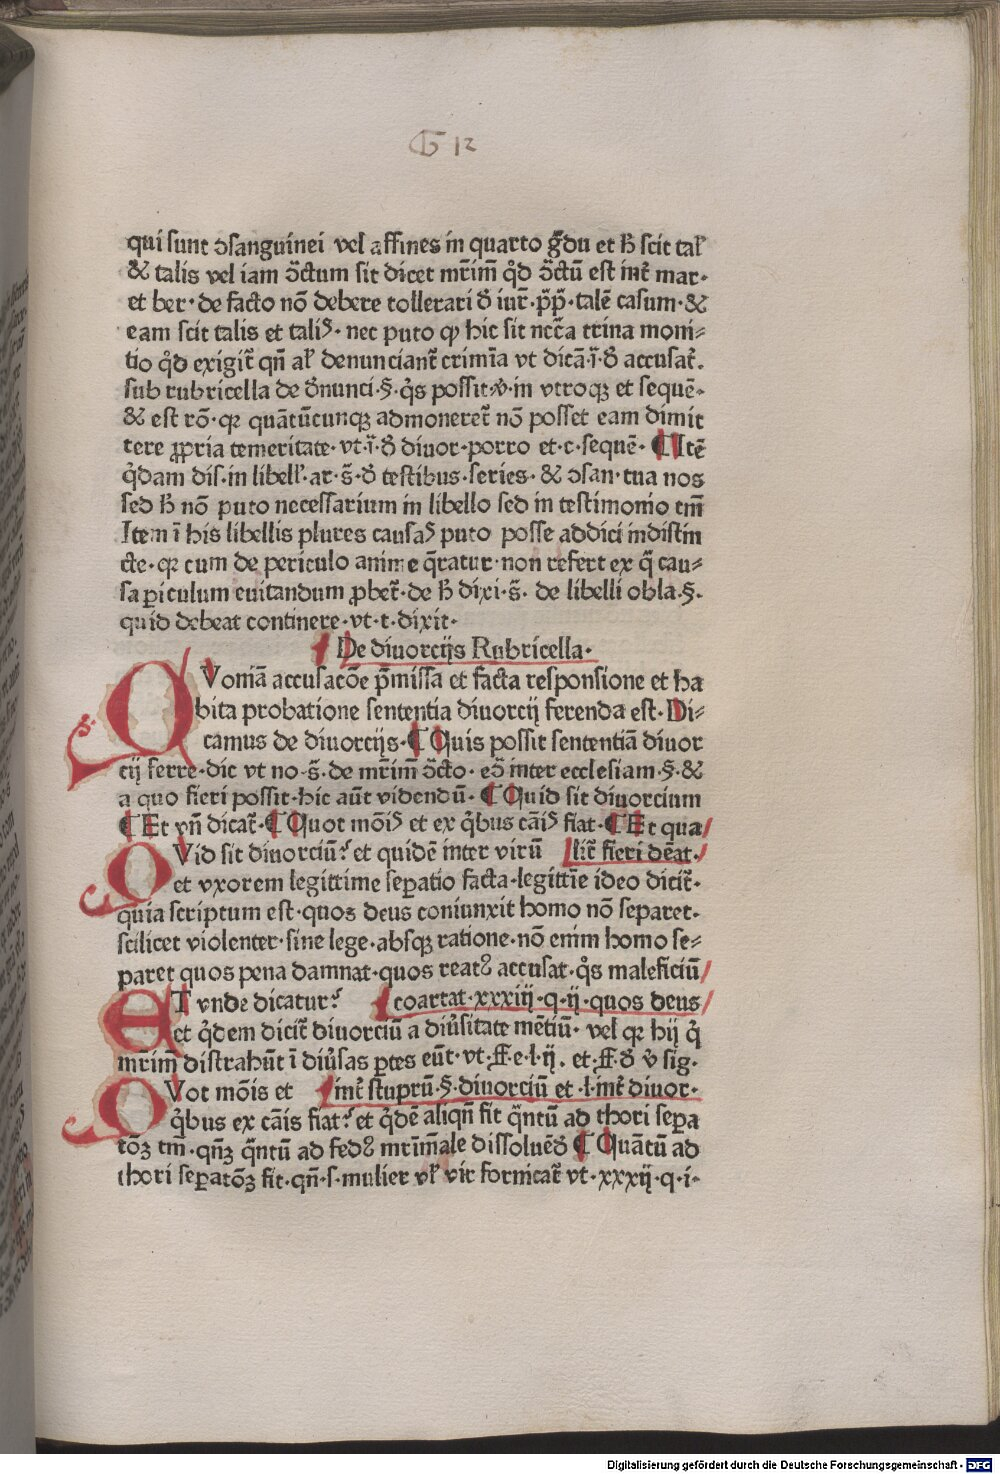 G 12
qui sunt ꝯsanguinei vel affines in quarto gͣdu et ħ scit tal̓
& talis vel iam ꝯ̄ctum sit dicet mr̄im̄ qd̓ ꝯ̄ctū est int̄ mar·
et ber· de facto nō debere tollerari đ iur̄· p̄p̄· talē casum· &
eam scit talis et taliꝰ· nec puto ꝙ hic sit nccͣ̄a trina moni⸗
tio qd̓ exigit̄ qn̄ al̓ denunciant̄ crimīa vt dicā·ī·đ accusat̄.
sub rubricella de đnunci·§·q̓s possit·℣·in vtroqꝫ et sequē·
& est rō· qꝛ quātūcunqꝫ admoneret̄ nō posset eam dimit
tere ꝓpria temeritate· vt·ī·đ diuor· porro et·c·sequē· ¶ Itē
q̓dam dis·in libell̓·ar·s̄·đ testibus·series· & ꝯsan· tua nos
sed ħ nō puto necessarium in libello sed in testimonio tm̄
Item ī his libellis plures causaꝰ puto posse addici indistin
cte· qꝛ cum de periculo anime q̄ratur· non refert ex q̄ cau⸗
sa ꝑiculum euitandum ꝓbet̄· de ħ dixi·s̄· de libelli obla·§·
quid debeat continere· vt·t·dixit·
¶ De diuorcijs Rubricella·
QVoniā accusacōe p̄missa et facta responsione et ha
bita probatione sententia diuorcij ferenda est· Di⸗
camus de diuorcijs· ¶ Quis possit sententiā diuor
cij ferre· dic vt no·s̄· de mr̄im̄ ꝯ̄cto· eō inter ecclesiam·§·&
a quo fieri possit· hic aūt videndū· ¶ Quid sit diuorcium
¶ Et vn̄ dicat̄· ¶ Quot mōiꝰ et ex q̓bus cāiꝰ fiat· ¶ Et qua/
QVid sit diuorciū? et quidē inter virū lit̄ fieri dēat·/
et vxorem legittime seꝑatio facta· legittīe ideo dicit̄·
quia scriptum est· quos deus coniunxit homo nō separet·
scilicet violenter· sine lege· absqꝫ ratione· nō enim homo se⸗
paret quos pena damnat· quos reatꝰ accusat· q̓s maleficiū/
ET vnde dicatur? coartat·xxxiij·q·ij·quos deus/
et q̓dem dicit̄ diuorciū a diu̓sitate mētiū· vel qꝛ hij q̓
mr̄im̄ distrahūt ī diu̓sas ꝑtes eūt· vt·ff·e·l·ij· et·ff·đ v̓ sig·
QVot mōis et int̄ stuprū·§·diuorciū et·l·int̄ diuor·
q̓bus ex cāis fiat? et q̓dē aliqn̄ fit q̄ntū ad thori seꝑa
tōꝫ tm̄· qn̄ꝫ q̄ntū ad fedꝰ mtr̄im̄ale dissoluēđ ¶ Quātū ad
thori seꝑatōꝫ fit· qn̄·s·mulier vl̓ vir fornicat̄ vt·xxxij·q·i·
Digitalisierung gefördert durch die Deutsche Forschungsgemeinschaft - DFG